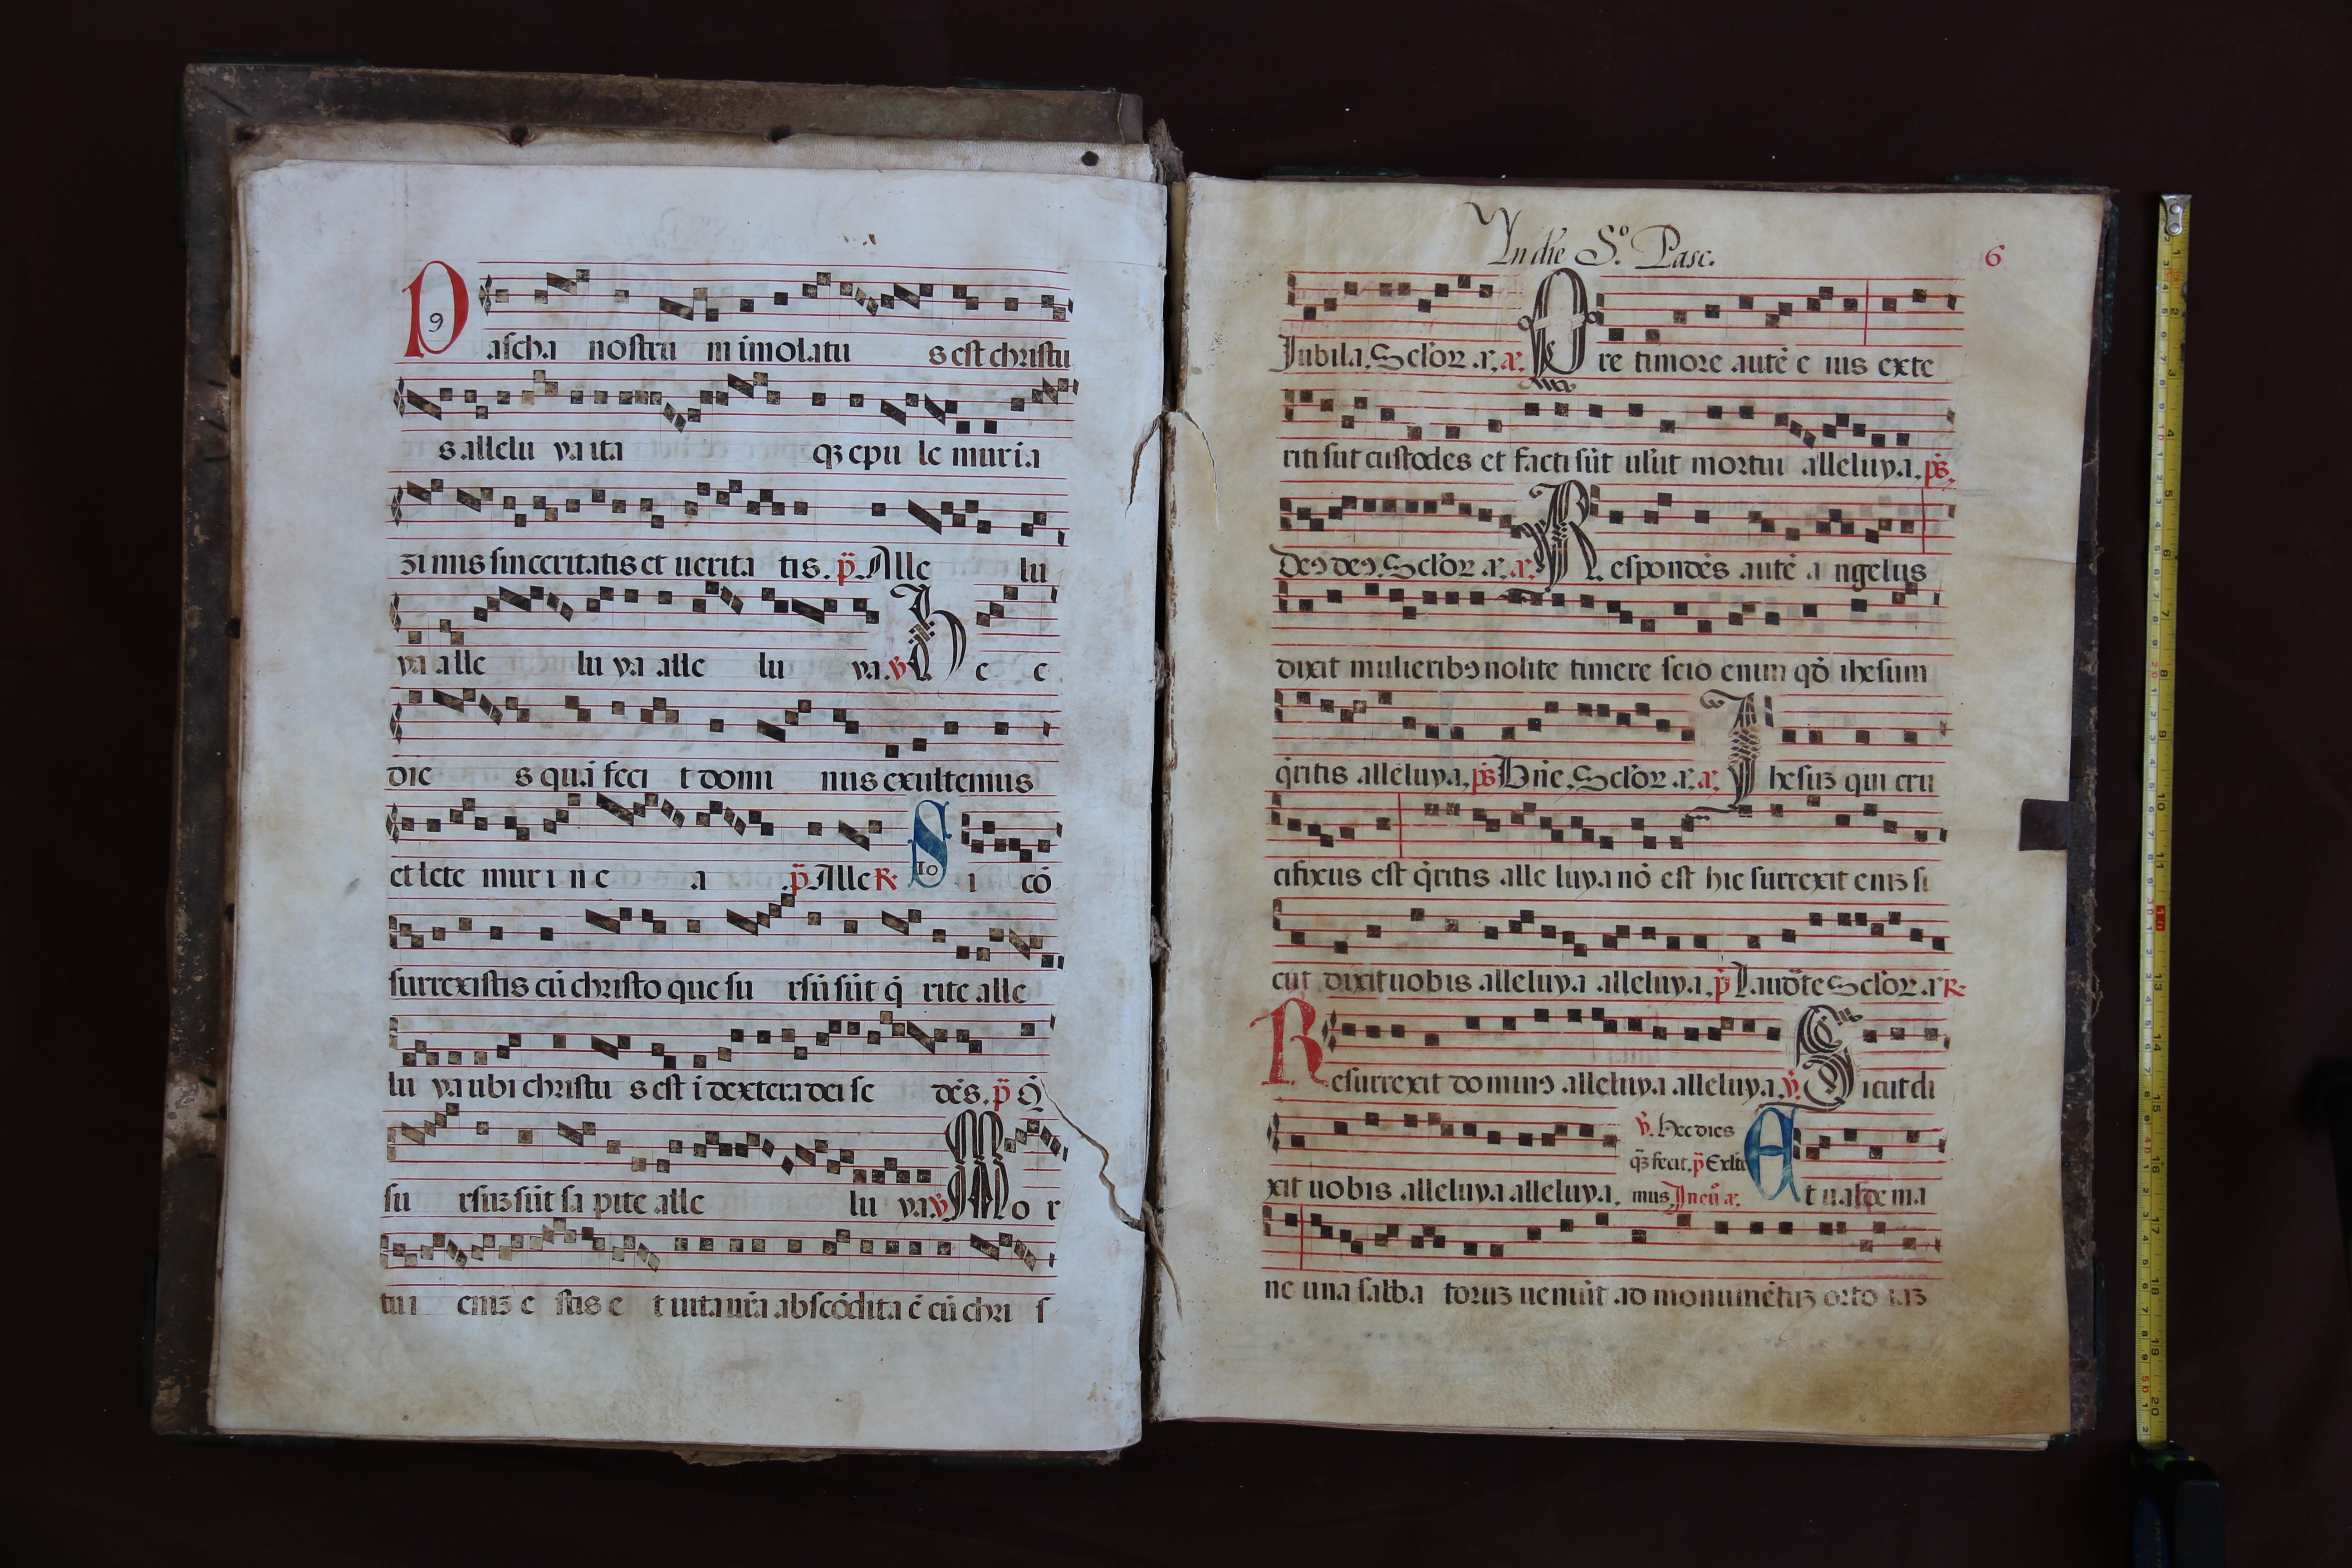 9
Pascha nostrũ mimolatu s est christu
s allelu ya ita qȝ epu le mur i a
zi mis sinceritatis et uerita tis. p̃. Alle lu
ya alle lu ya alle lu ya. ꝟ H e c
die s quã feci t domi nus exultemus
et lete mur i n e a .p̃ Alle R. 10 S i cõ
surrexistis cũ christo que su rsũ sũt q̃ rite alle
lu ya ubi christu s est ĩ dextera dei se dẽs. p̃ Q̃
su rsuȝ sũt sa pite alle lu ya. ꝟ Mo r
tu i eniȝ e stis e t uita ur̃a abscõdita ẽ cũ chri s
Yn die S.º Pasc. 6
Jubila. Sclor. a. a. Pre timore autẽ e ius exte
riti sut custodes et facti sũt ulut mortui alleluya. ps̃.
Deꝯ deꝯ. Sclor a. a. Respondẽs autẽ a ngelus
dixit mulieribꝯ nolite timere scio enim qõ ihesum
q̃ritis alleluya. ps̃ Dñe. Sclor. a. a. Ihesuȝ qui cru
cifixus est q̃ritis alle luya nõ est hic surrexit eniȝ si
cut dixit uobis alleluya alleluya. p̃ Laudate Sclor. a R.
Resurrexit dominꝯ alleluya alleluya. ꝟ. Sicut di
xit uobis alleluya alleluya. ꝟ. Hec dies
qȝ fecit. p̃ Exlte
mus. In eũ a. Et ualde ma
ne una sabba toruȝ ueniũt ad monumẽtuȝ orto iaȝ